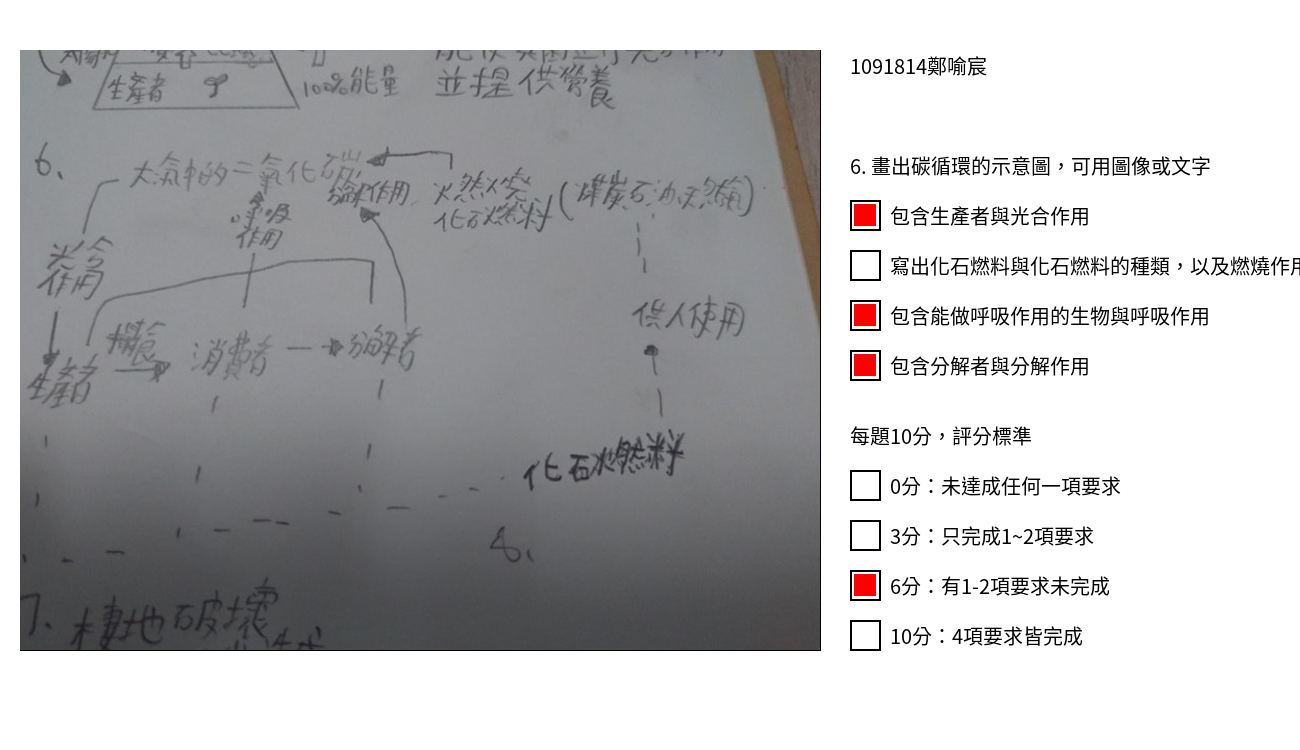 生產者
100%能量
並提供營養
6.
大氣中的二氧化碳
分解作用
燃燒
化石燃料(煤炭石油天然氣)
呼吸
作用
光合
作用
供人使用
攝食
消費者
分解者
生產者
化石燃料
8.
7. 棲地破壞
1091814鄭喻宸
6. 畫出碳循環的示意圖，可用圖像或文字
包含生產者與光合作用
寫出化石燃料與化石燃料的種類，以及燃燒作用
包含能做呼吸作用的生物與呼吸作用
包含分解者與分解作用
每題10分，評分標準
0分：未達成任何一項要求
3分：只完成1~2項要求
6分：有1-2項要求未完成
10分：4項要求皆完成